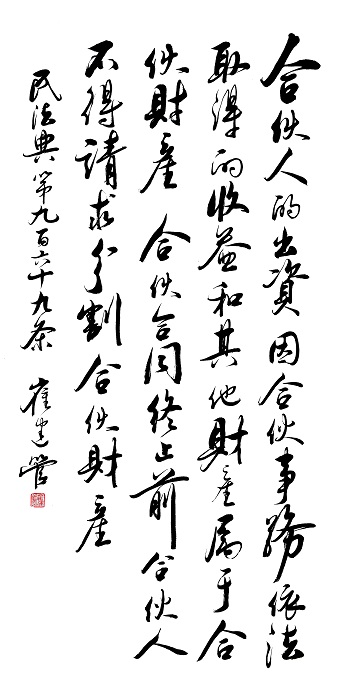 合伙人的出資因合伙事務依法
取得的收益和其他財産属于合
伙財産合伙合同终止前合伙人
不得請求分割合伙財産
民法典第九百六十九条 崔建管